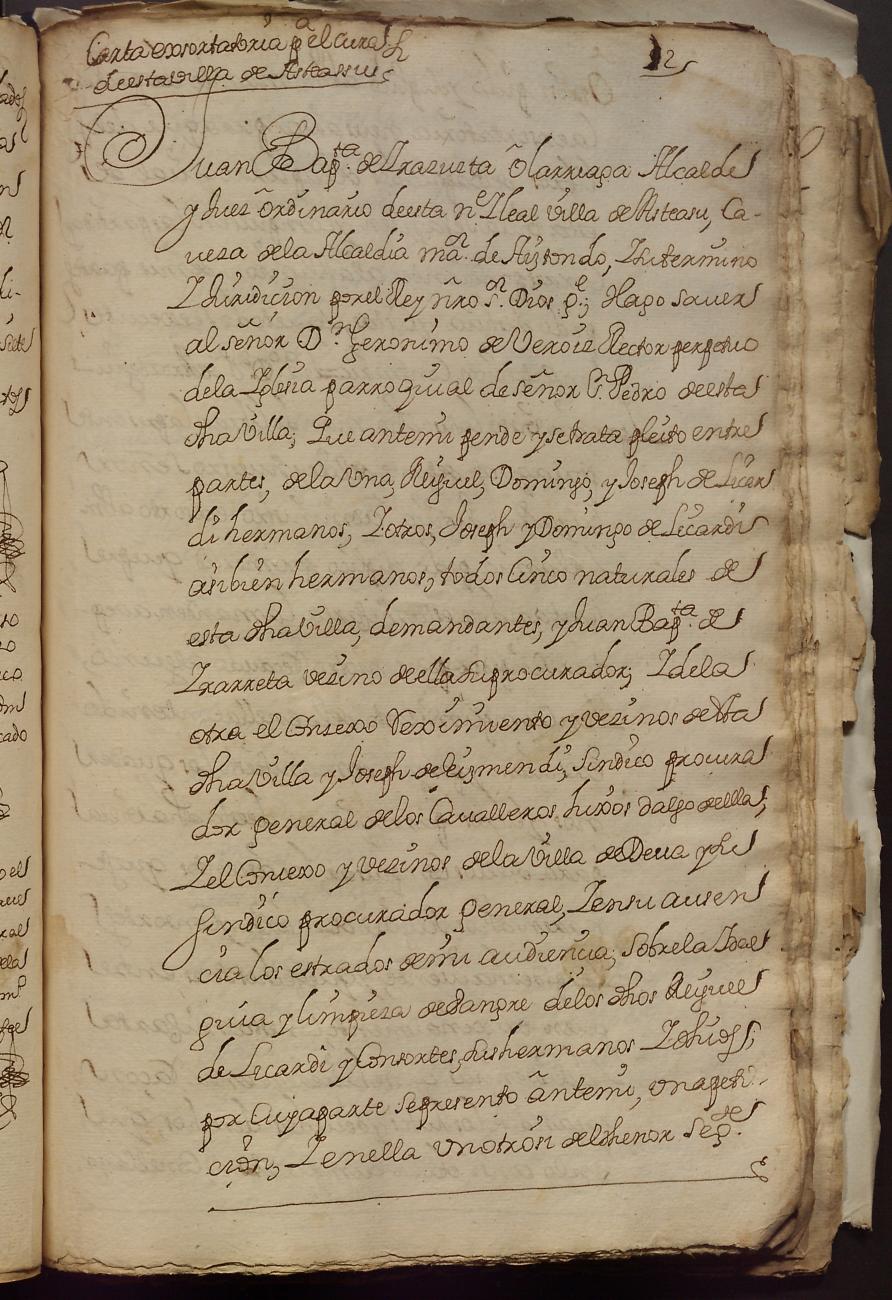 Carta exsortatoria pª el cura
de esta villa de Asteassu
12
Juan Bapta. de Irazueta olarriaga Alcalde
y Juez ordinario de esta ne. Y leal villa de Asteasu, Ca-
veza de la Alcaldia maor. de Aiztondo, Y su termino
Y Juridicion por el Rey nro sor. Dios ge.; Hago saver
al señor Dn. Geronimo de Veroiz Rector perpetuo
de la Yglesia parroquial de señor S. Pedro de esta
dha Villa; Que ante mi pende y se trata pleito entre
partes, de la Una, Miguel, Domingo, y Joseph de Licar
di hermanos, Y otros, Joseph y Domingo de Licardi
asibien hermanos, todos Cinco naturales de
esta dha Villa, demandantes, y Juan Bapta. de
Yrarreta vezino de ella su procurador; Y de la
otra el Conzexo Reximiento y vezinos de esta
dha Villa y Joseph de Eizmendi, sindico procura
dor general de los Cavalleros hixos dalgo de ella;
Y el Conzexo y vezinos de la Villa de Deva y su
sindico procurador general, Y en su ausen
cia los estrados de mi audiencia; sobre la Ydal
guia y limpieza de sangre de los dhos Miguel
de Licardi y Consortes, sus hermanos Y
por Cuya parte se presento ante mi, una peti-
cion, Y en ella un otrosi del thenor sege.